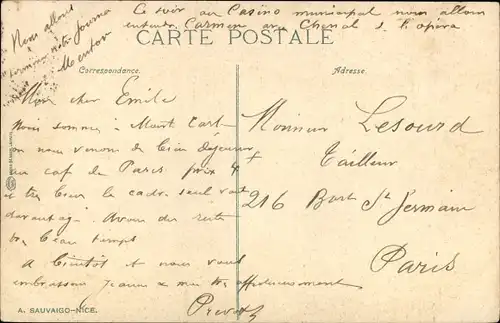 Ce soir au Casino municipal nous allon
entendre Carmen avec Chenal de l'opéra
Nous allons
terminer notre journée
Menton
CARTE POSTALE
Correspondance.
Adresse.
Mon cher Emile
Nous sommes à Mont Carl
on nous venon de bien déjeuner
au caf de Paris prix 4
et très bien le cadre seul vaut
davantage Avons du reste
très beau temps
A bientôt et nous vous
embrassons affectueusement
Monsieur Lesourd
Tailleur
216 Bard St Germain
Paris
A. SAUVAIGO-NICE.